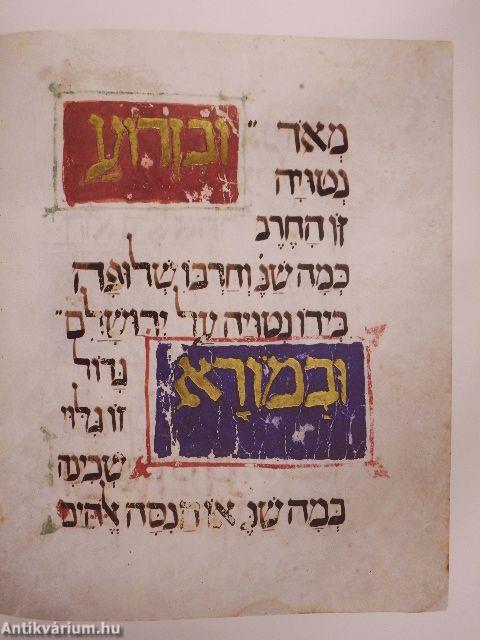 מְאֹד ״ וּבִזְרוֹעַ
נְטוּיָה
זוֹ הַחֶרֶב
כְּמָה שֶׁנֶּ וְחַרְבּוֹ שְׁלוּפָה
בְּיָדוֹ נְטוּיָה עַל יְרוּשָׁלִַם ״
וּבְמוֹרָא גָּדוֹל
זוֹ גִּלּוּי
שְׁכִינָה
כְּמָה שֶׁנֶּ אוֹ הֲנִסָּה אֱלֹהִים
Antikvárium.hu